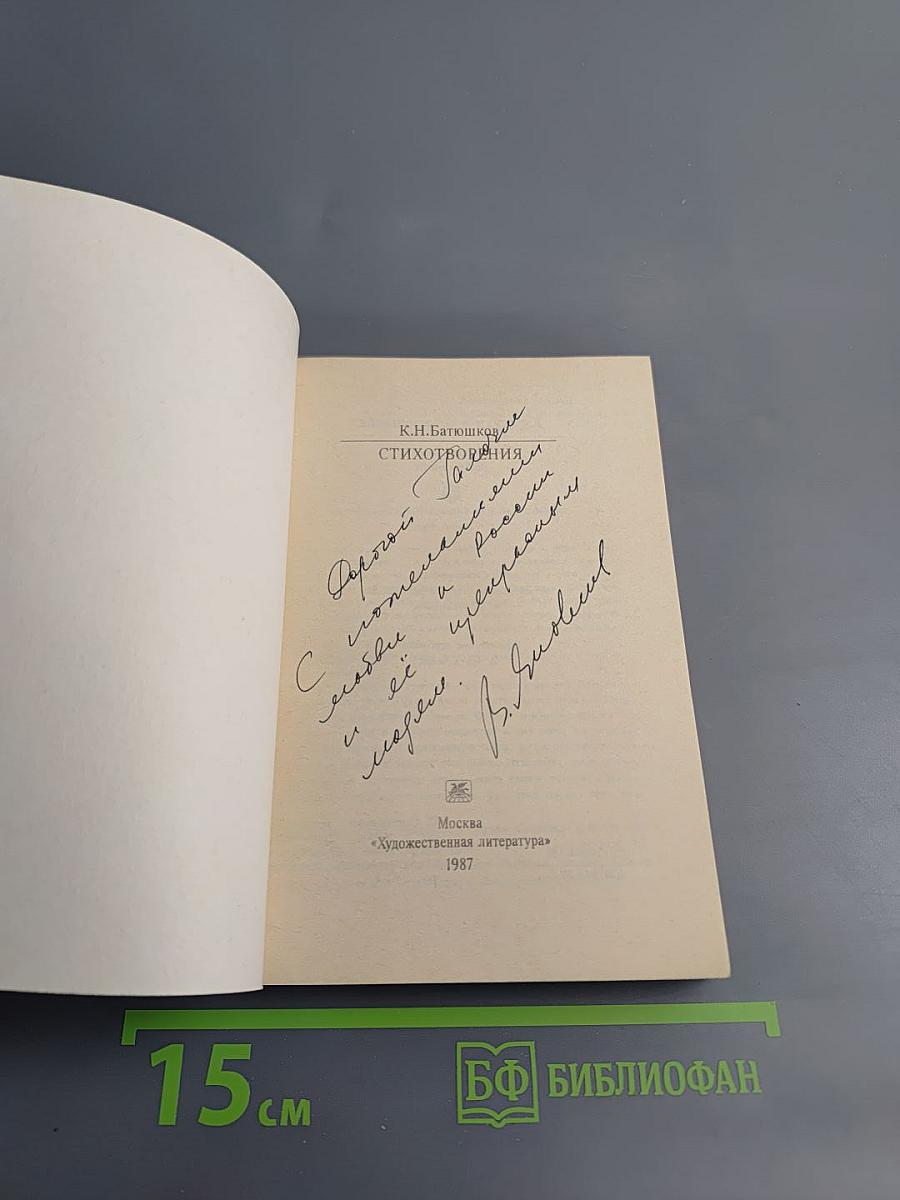 К.Н.Батюшков
СТИХОТВОРЕНИЯ
Дорогой Галочке
С пожеланиями
любви к России
и её прекрасным
людям.
В.
Москва
«Художественная литература»
1987
15 см
БФ БИБЛИОФАН